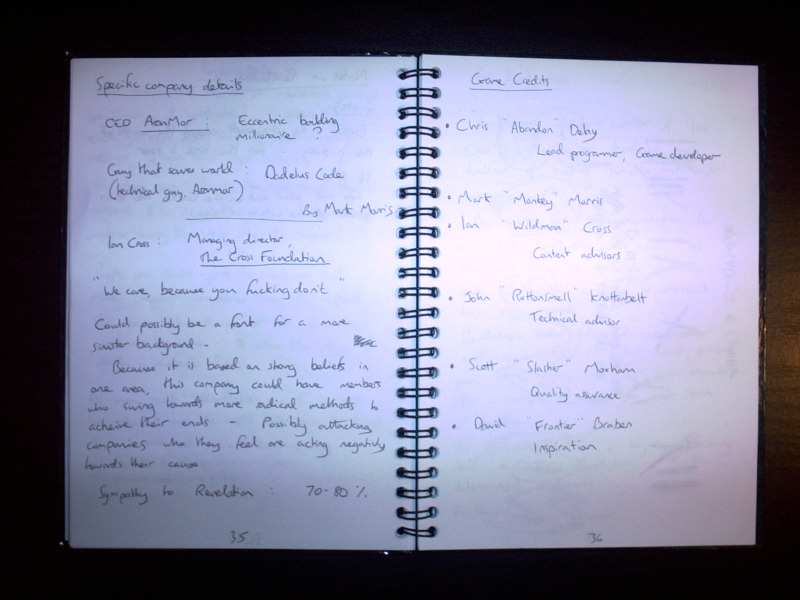 Specific company details
CEO AronMor : Eccentric bumbling
millionaire ?
Guy that saves world : Dadelus Code
(technical guy, Aronmor)
By Mark Morris
Ian Cross : Managing director,
The Cross Foundation
"We care, because you fucking don't"
Could possibly be a front for a more
sinister background -
Because it is based on strong beliefs in
one area, this company could have members
who swing towards more radical methods to
acheive their ends - Possibly attacking
companies who they feel are acting negatively
towards their cause.
Sympathy to Revelation : 70-80 %
35
Game Credits
• Chris "Abandon" Deby
Lead programmer, Game developer
• Mark "Monkey" Morris
• Ian "Wildman" Cross
Content advisors
• John "Rottonsmell" Knottenbelt
Technical advisor
• Scott "Slasher" Moxham
Quality assurance
• David "Frontier" Braben
Inspiration
36